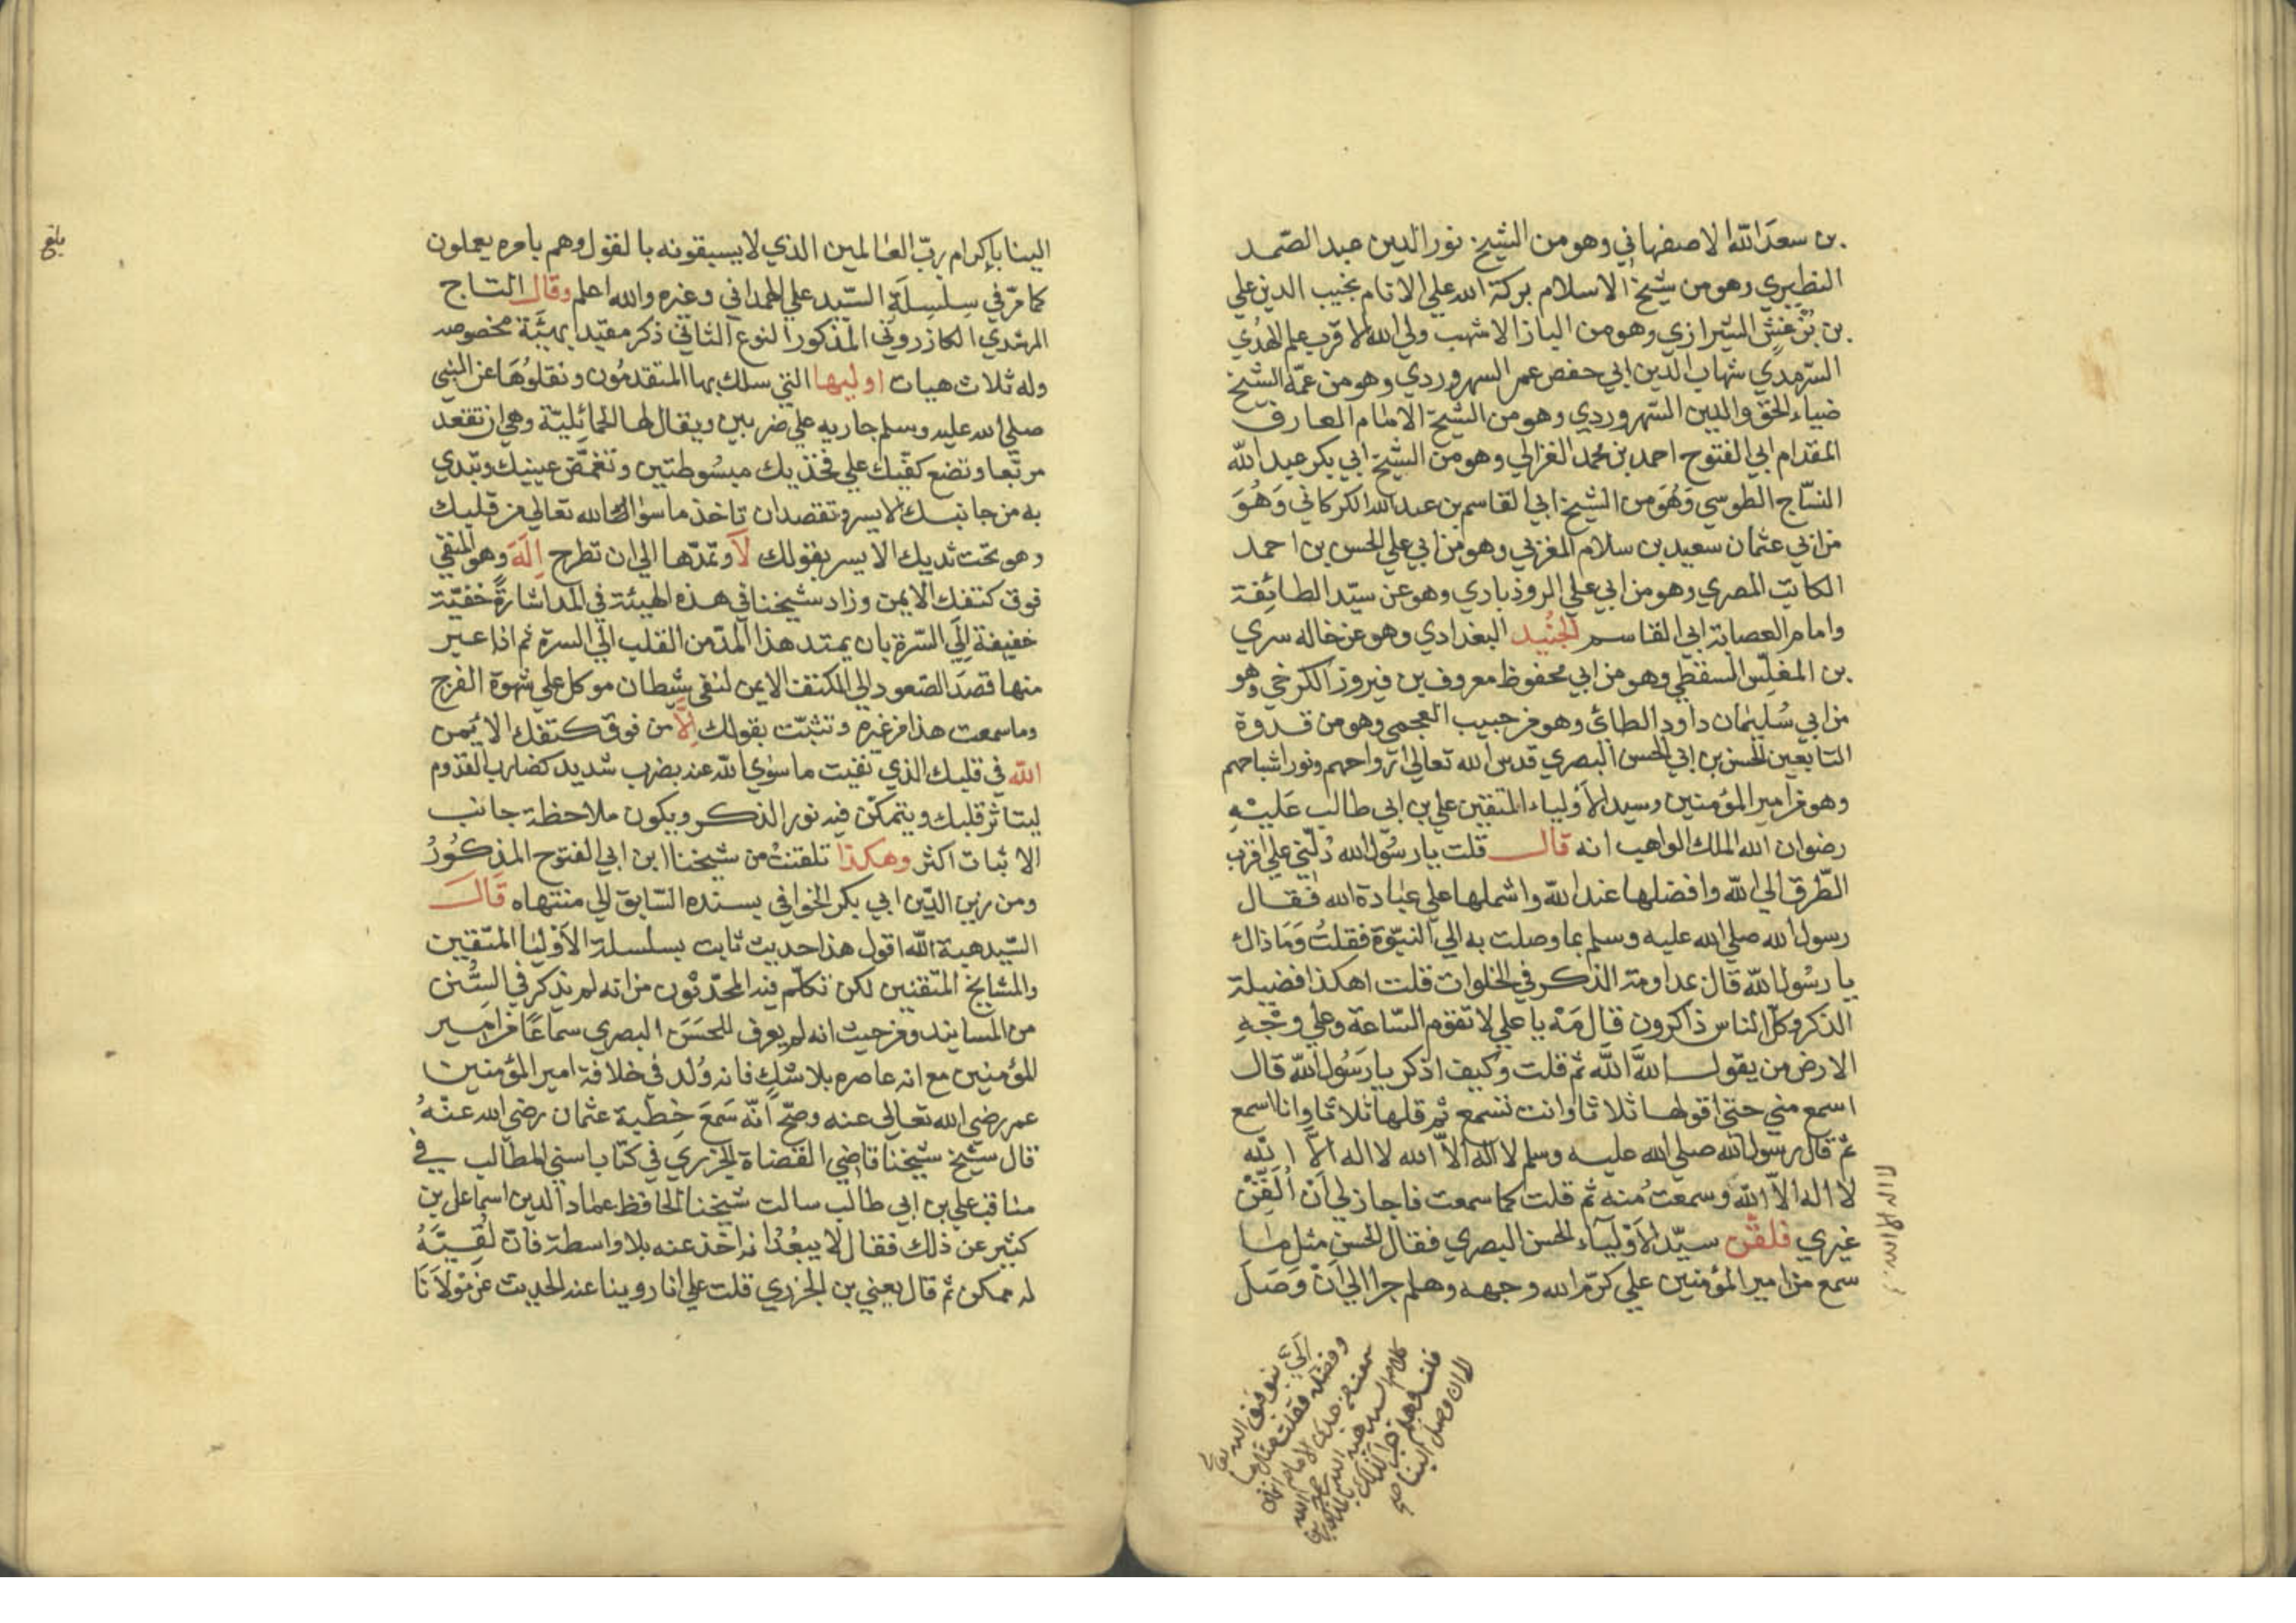 بن سعد الله الاصفهاني وهو من الشيخ نور الدين عبد الصمد
النطيري وهو من شيخ الاسلام بركة الله علي الانام نجيب الدين علي
بن بزغش الشيرازي وهو من الباز الاشهب ولي الله الاقرب علم الهدي
السرمدي شهاب الدين ابي حفص عمر السهروردي وهو من عمه الشيخ
ضياء الحق والدين السهروردي وهو من الشيخ الامام العارف
المقدام ابي الفتوح احمد بن محمد الغزالي وهو من الشيخ ابي بكر عبد الله
النساج الطوسي وهو من الشيخ ابي القاسم بن عبد الله الكركاني وهو
من ابي عثمان سعيد بن سلام المغربي وهو من ابي علي الحسن بن احمد
الكاتب المصري وهو من ابي علي الروذبادي وهو عن سيد الطائفة
وامام العصابة ابي القاسم الجنيد البغدادي وهو عن خاله سري
بن المغلس السقطي وهو من ابي محفوظ معروف بن فيروز الكرخي وهو
من ابي سليمان داود الطائي وهو من حبيب العجمي وهو من قدوة
التابعين الحسن بن ابي الحسن البصري قدس الله تعالي ارواحهم ونور اشباحهم
وهو من امير المؤمنين وسيد الاولياء المتقين علي بن ابي طالب عليه
رضوان الله الملك الواهب انه قال قلت يا رسول الله دلني علي اقرب
الطرق الي الله وافضلها عند الله واشملها علي عبادة الله فقال
رسول الله صلي الله عليه وسلم بما وصلت به الي النبوة فقلت وما ذاك
يا رسول الله قال بمداومة الذكر في الخلوات قلت اهكذا فضيلة
الذكر وكل الناس ذاكرون قال مه يا علي لا تقوم الساعة وعلي وجه
الارض من يقول الله الله ثم قلت وكيف اذكر يا رسول الله قال
اسمع مني حتي اقولها ثلاثا وانت تسمع ثم قلها ثلاثا وانا اسمع
ثم قال رسول الله صلي الله عليه وسلم لا اله الا الله لا اله الا الله
لا اله الا الله وسمعت منه ثم قلت كما سمعت فاجاز لي ان القن
غيري فلقن سيد الاولياء الحسن البصري فقال الحسن مثل ما
سمع من امير المؤمنين علي كرم الله وجهه وهلم جرا الي ان وصل
الينا باكرام رب العالمين الذي لا يسبقونه بالقول وهم بامره يعملون
كما مر في سلسلة السيد علي الهمداني وغيره والله اعلم وقال التاج
المرشدي الكازروني المذكور النوع الثاني ذكر مقيد بهيئة مخصوصه
وله ثلاث هيات اوليها التي سلك بها المتقدمون ونقلوها عن النبي
صلي الله عليه وسلم جاريه علي ضربين ويقال لها الحمائلية وهي ان تقعد
مربعا وتضع كفيك علي فخذيك مبسوطتين وتغمض عينيك وتبدي
به من جانبك الايسر وتقصد ان تاخذ ما سوي الله تعالي من قلبك
وهو تحت ثديك الايسر بقولك لا وتمدها الي ان تطرح اله وهو المنفي
فوق كتفك الايمن وزاد شيخنا في هذه الهيئة في المد اشارة خفية
خفيفة الي السرة بان يمتد هذا المد من القلب الي السرة ثم اذا عبر
منها قصد الصعود الي الكتف الايمن لنفي شيطان موكل علي شهوة الفرج
وما سمعت هذا من غيره وتثبت بقولك الا من فوق كتفك الايمن
الله في قلبك الذي نفيت ما سوي الله عنه بضرب شديد كضارب القدوم
ليتاثر قلبك ويتمكن فيه نور الذكر ويكون ملاحظة جانب
الاثبات اكثر وهكذا تلقنت من شيخنا ابن ابي الفتوح المذكور
ومن زين الدين ابي بكر الخوافي بسنده السابق الي منتهاه قال
السيد هبة الله اقول هذا حديث ثابت بسلسلة الاوليا المتقين
والمشايخ المتقنين لكن تكلم فيه المحدثون من انه لم يذكر في السنن
من المسانيد ومن حيث انه لم يعرف للحسن البصري سماعا من امير
المؤمنين مع انه عاصره بلا شك فانه ولد في خلافة امير المؤمنين
عمر رضي الله تعالي عنه وصح انه سمع خطبة عثمان رضي الله عنه
قال شيخ شيخنا قاضي القضاة الجزري في كتاب اسني المطالب في
مناقب علي بن ابي طالب سالت شيخنا الحافظ عماد الدين اسماعل بن
كثير عن ذلك فقال لا يبعد انه اخذ عنه بلا واسطة فان لقيه
له ممكن ثم قال يعني بن الجزري قلت علي انا روينا عنه الحديث عن مولانا
بلغ